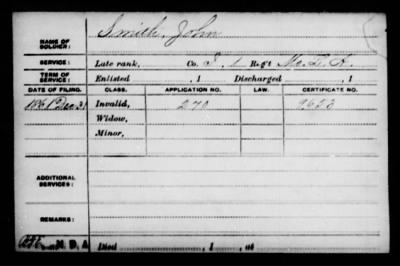 NAME OF SOLDIER: Smith, John
SERVICE: Late rank, Co. , Reg't
TERM OF SERVICE: Enlisted , 1 Discharged , 1
DATE OF FILING. CLASS. APPLICATION NO. LAW. CERTIFICATE NO.
Dec 31 Invalid, 270 9623
Widow,
Minor,
ADDITIONAL SERVICES:
REMARKS:
Died , 1 , at